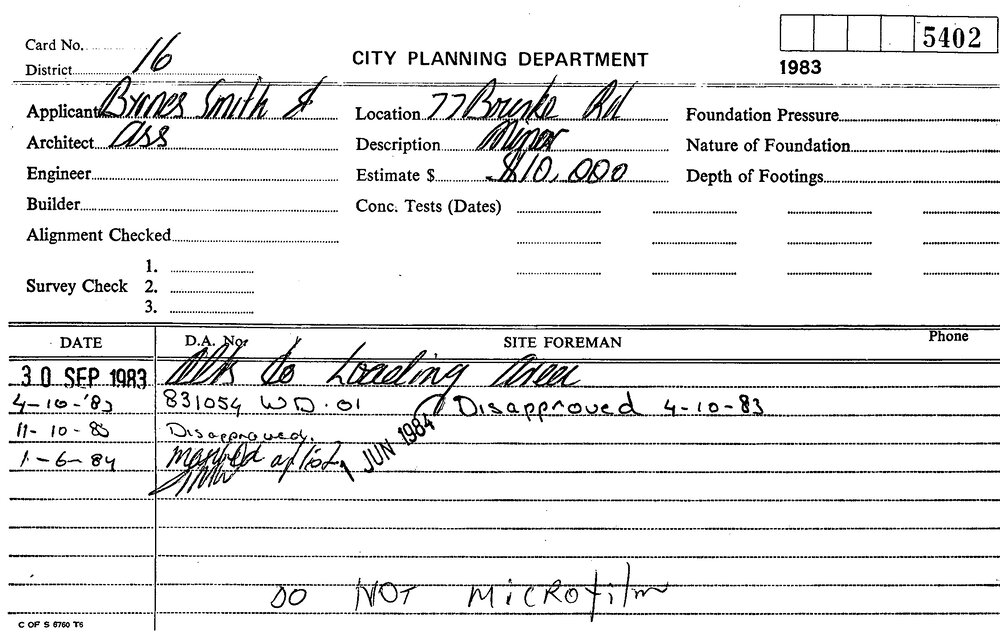 5402
Card No. 16
CITY PLANNING DEPARTMENT
District
1983
Applicant Byrnes Smith & Location 77 Bourke Rd Foundation Pressure
Architect Ass Description Minor Nature of Foundation
Engineer Estimate $ $10,000 Depth of Footings
Builder Conc. Tests (Dates)
Alignment Checked
1.
Survey Check 2.
3.
DATE D.A. No. SITE FOREMAN Phone
30 SEP 1983 Alts to Loading Area
4-10-'83 831054 WD.01 Disapproved 4-10-83
11-10-83 Disapproved.
1-6-84 1 JUN 1984
DO NOT MICROfilm
C OF S 6760 T6